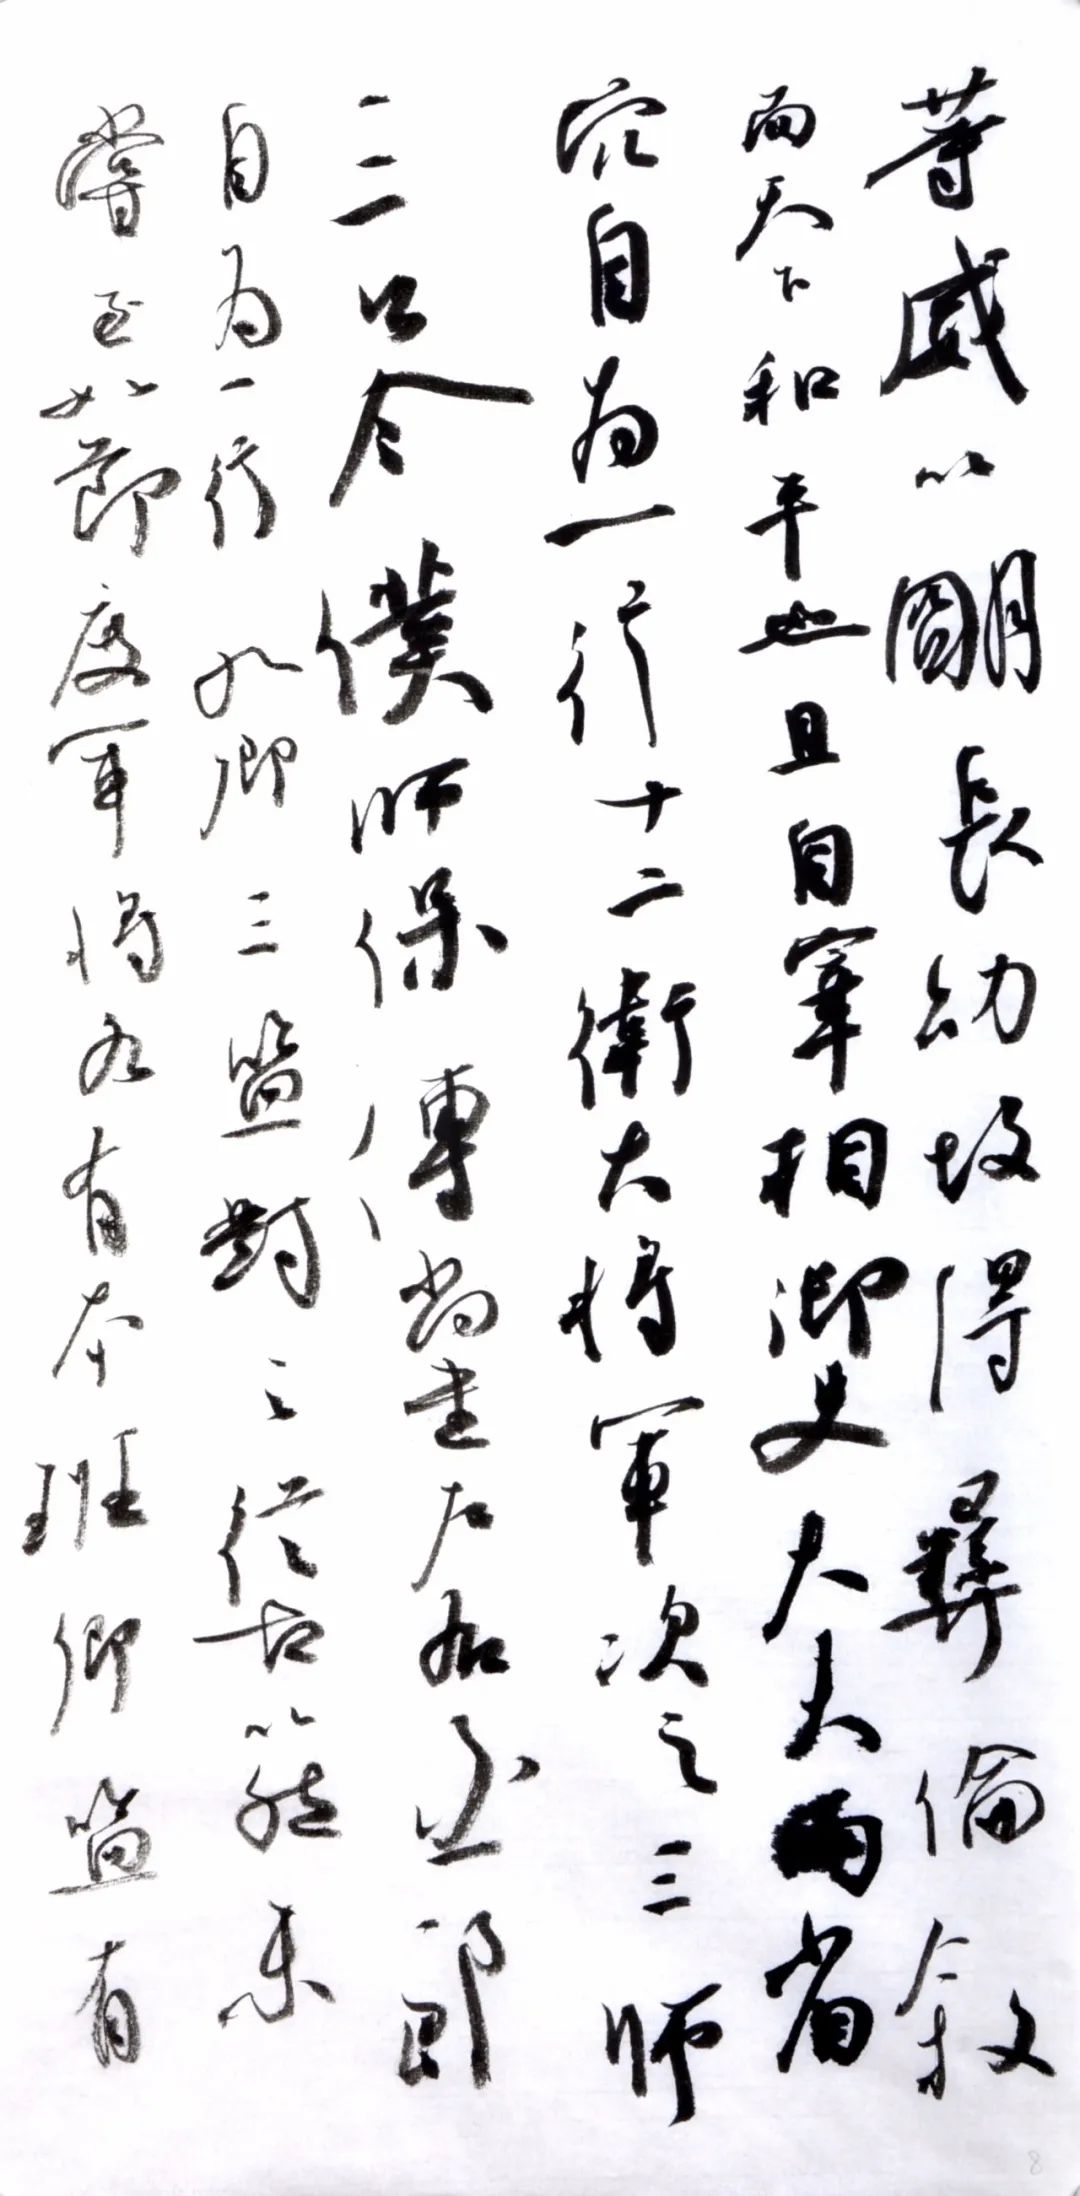 等威以朙長幼故得彝倫敘
而天下和平也且自宰相御史大夫兩省
自為一行十二衛大將軍次之三師
三公令僕師保傅尚書左右丞郎
自為一行九卿三監對之從古以然未
嘗至如節度軍將各有本班卿監有
8